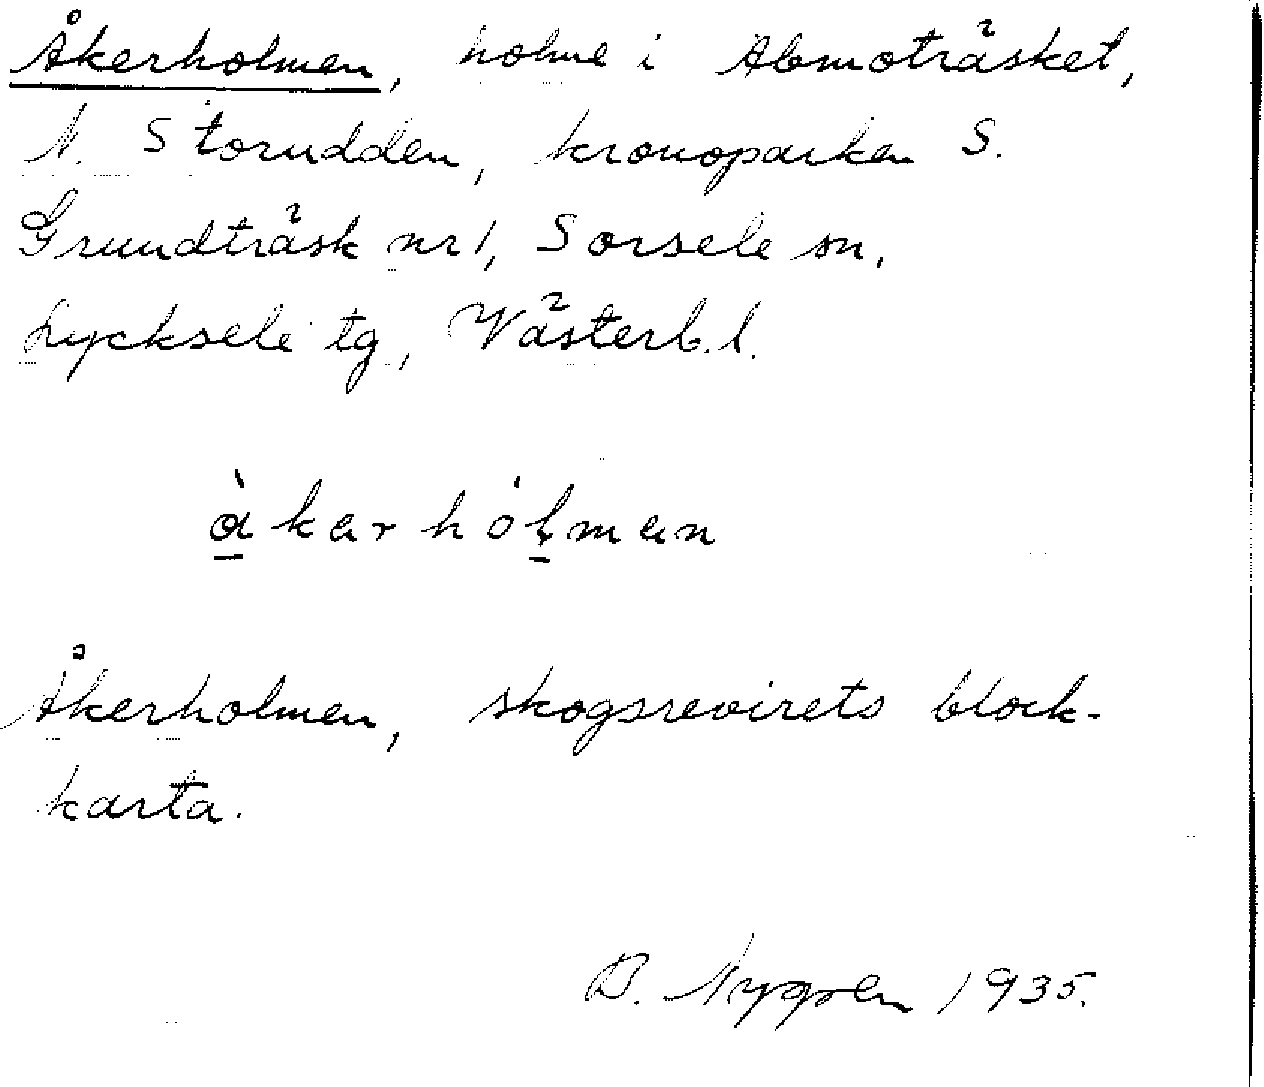 Åkerholmen, holme i Abmoträsket,
N. Storudden, kronoparken S.
Grundträsk nr 1, Sorsele sn,
Lycksele tg, Västerb. l.
åkarhólmen
Åkerholmen, skogsrevirets block-
karta.
B. Nygren 1935.